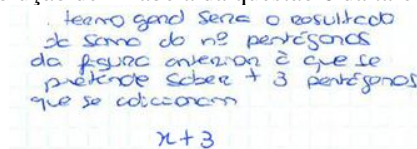 . termo geral seria o resultado
da soma do nº pentágonos
da figura anterior à que se
pretende saber + 3 pentágonos
que se adicionam
n+3